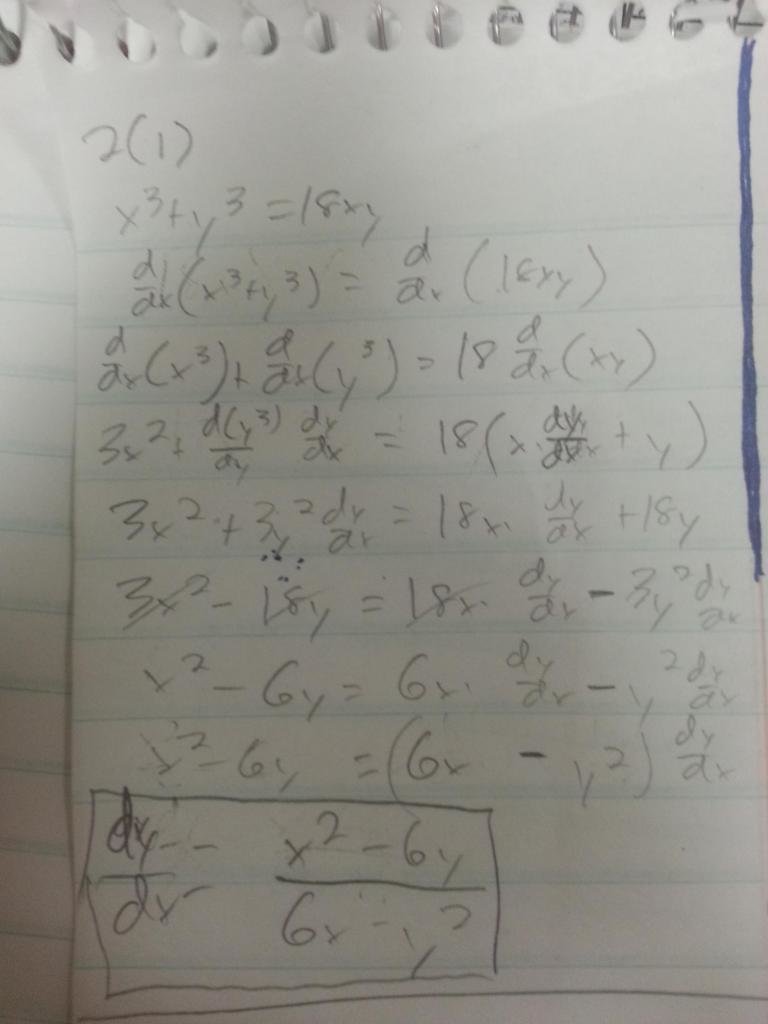 2(1)
x³+y³=18xy
d/dx(x³+y³) = d/dx (18xy)
d/dx(x³)+d/dx(y³) = 18 d/dx(xy)
3x²+d(y³)/dy dy/dx = 18(x·dy/dx + y)
3x²+3y²dy/dx = 18x· dy/dx +18y
3x²-18y = 18x· dy/dx - 3y²dy/dx
x²-6y = 6x· dy/dx - y²dy/dx
x²-6y = (6x - y²) dy/dx
dy/dx = x²-6y/6x-y²